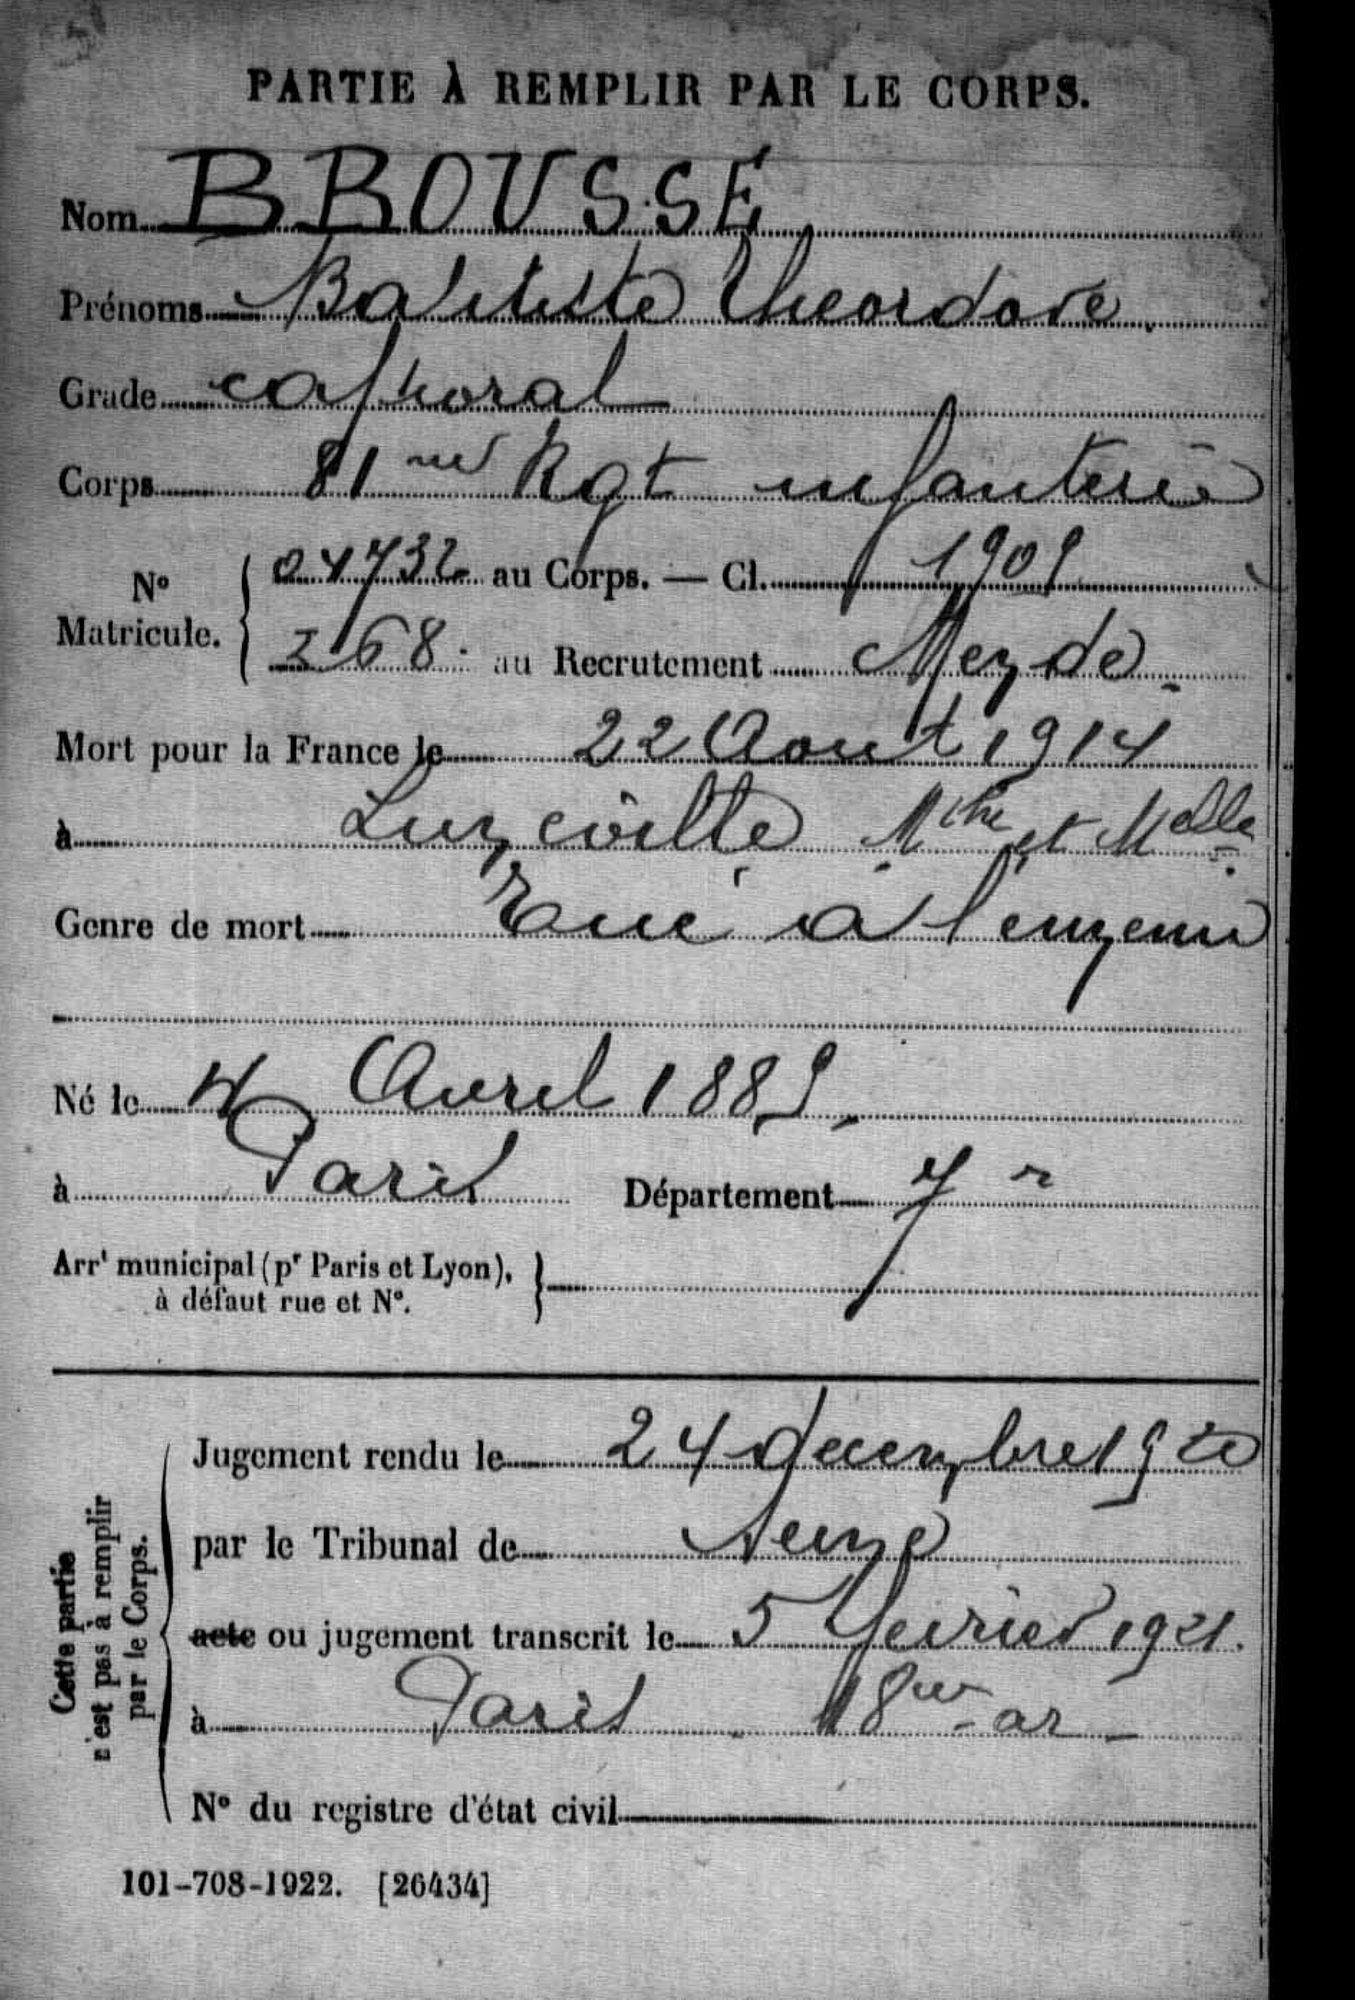 PARTIE À REMPLIR PAR LE CORPS.
Nom BROUSSE
Prénoms Batiste Theordore
Grade caporal
Corps 81me Rgt infanterie
N° Matricule. 04732 au Corps. — Cl. 1909
368. au Recrutement Mende
Mort pour la France le 22 Aout 1914
à Lunéville Mthe et Melle
Genre de mort Tué à l'ennemi
Né le 4 Avril 1889
à Paris Département 7e
Arrt municipal (pr Paris et Lyon), à défaut rue et N°.
Cette partie n'est pas à remplir par le Corps.
Jugement rendu le 24 decembre 1920
par le Tribunal de Seine
acte ou jugement transcrit le 5 fevrier 1921.
à Paris 18me ar
N° du registre d'état civil
101-708-1922. [26434]